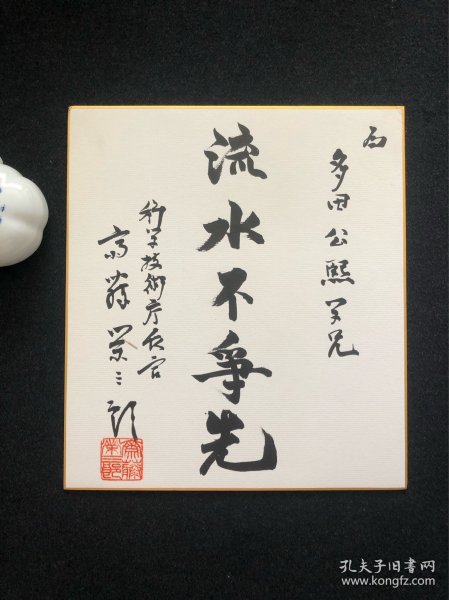 為
多田公熙学兄
流水不爭先
科学技術庁長官
斎藤栄三郎
孔夫子旧书网
www.kongfz.com